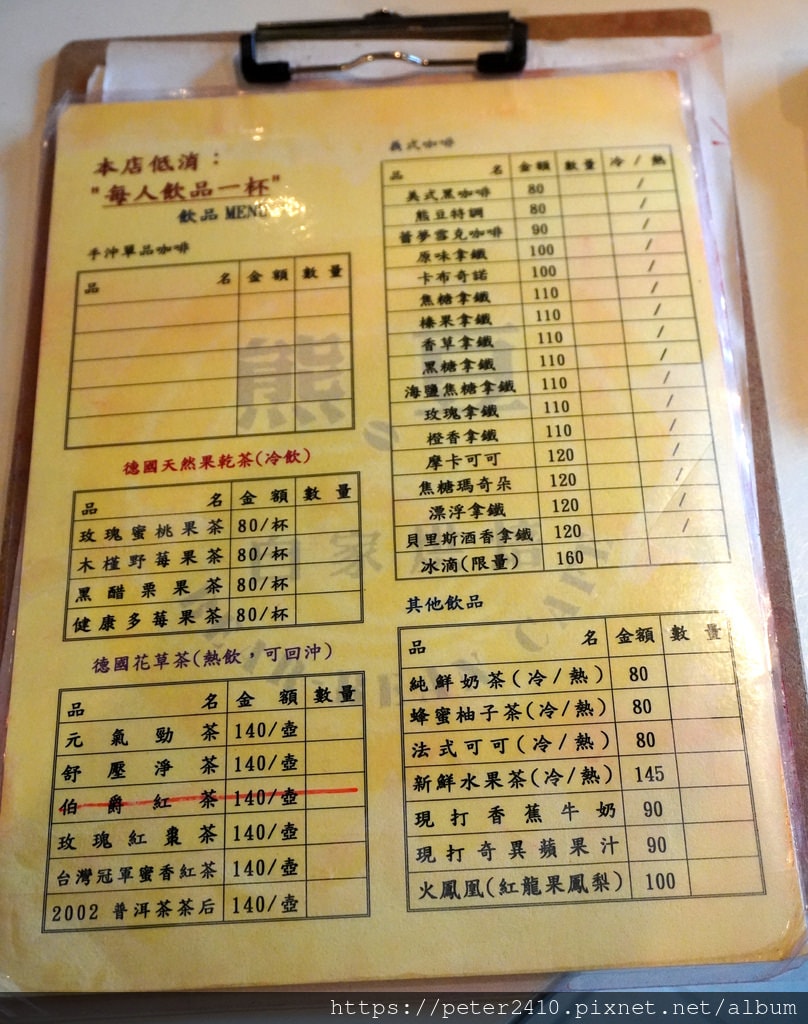 本店低消：
"每人飲品一杯"
飲品 MENU
手沖單品咖啡
品 名 金額 數量
德國天然果乾茶(冷飲)
品 名 金額 數量
玫瑰蜜桃果茶 80/杯
木槿野莓果茶 80/杯
黑醋栗果茶 80/杯
健康多莓果茶 80/杯
德國花草茶(熱飲，可回沖)
品 名 金額 數量
元氣勁茶 140/壺
舒壓淨茶 140/壺
伯爵紅茶 140/壺
玫瑰紅棗茶 140/壺
台灣冠軍蜜香紅茶 140/壺
2002 普洱茶茶后 140/壺
義式咖啡
品 名 金額 數量 冷/熱
美式黑咖啡 80 /
熊豆特調 80 /
蕾夢雪克咖啡 90 /
原味拿鐵 100 /
卡布奇諾 100 /
焦糖拿鐵 110 /
榛果拿鐵 110 /
香草拿鐵 110 /
黑糖拿鐵 110 /
海鹽焦糖拿鐵 110 /
玫瑰拿鐵 110 /
橙香拿鐵 110 /
摩卡可可 120 /
焦糖瑪奇朵 120 /
漂浮拿鐵 120 /
貝里斯酒香拿鐵 120 /
冰滴(限量) 160
其他飲品
品 名 金額 數量
純鮮奶茶(冷/熱) 80
蜂蜜柚子茶(冷/熱) 80
法式可可(冷/熱) 80
新鮮水果茶(冷/熱) 145
現打香蕉牛奶 90
現打奇異蘋果汁 90
火鳳凰(紅龍果鳳梨) 100
熊豆
自家
https://peter2410.pixnet.net/album